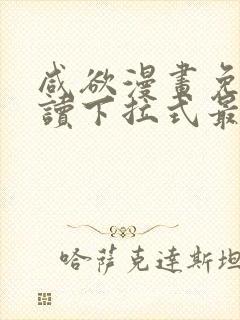 咸欲漫畫免
讀下拉式最
哈薩克達斯坦